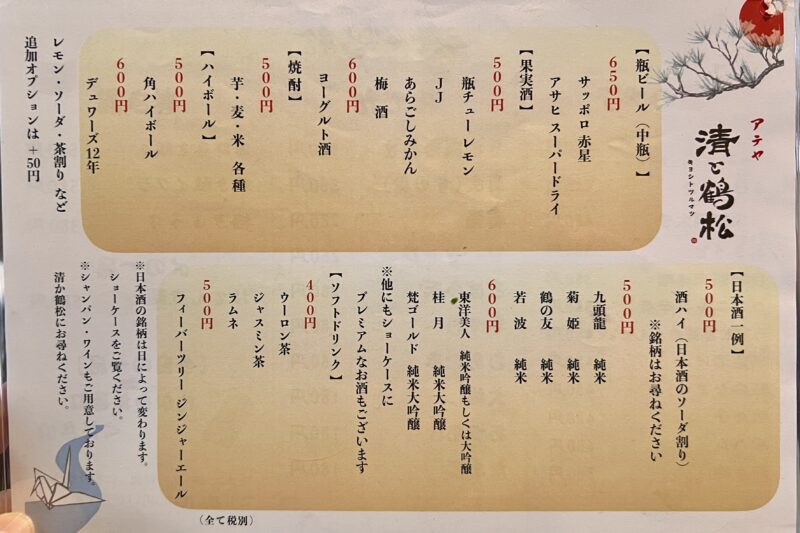 アテヤ
清と鶴松
キヨシトツルマツ
【瓶ビール（中瓶）】
650円
サッポロ 赤星
アサヒ スーパードライ
【果実酒】
500円
瓶チューレモン
JJ
あらごしみかん
梅 酒
600円
ヨーグルト酒
【焼酎】
500円
芋・麦・米 各種
【ハイボール】
500円
角ハイボール
600円
デュワーズ12年
レモン・ソーダ・茶割り など
追加オプションは +50円
【日本酒一例】
500円
酒ハイ（日本酒のソーダ割り）
※銘柄はお尋ねください
500円
九頭龍 純米
菊 姫 純米
鶴の友 純米
若 波 純米
600円
東洋美人 純米吟醸もしくは大吟醸
桂 月 純米大吟醸
梵ゴールド 純米大吟醸
※他にもショーケースに
プレミアムなお酒もございます
【ソフトドリンク】
400円
ウーロン茶
ジャスミン茶
ラムネ
500円
フィーバーツリー ジンジャーエール
※日本酒の銘柄は日によって変わります。
ショーケースをご覧ください。
※シャンパン・ワインもご用意しております。
清か鶴松にお尋ねください。
（全て税別）